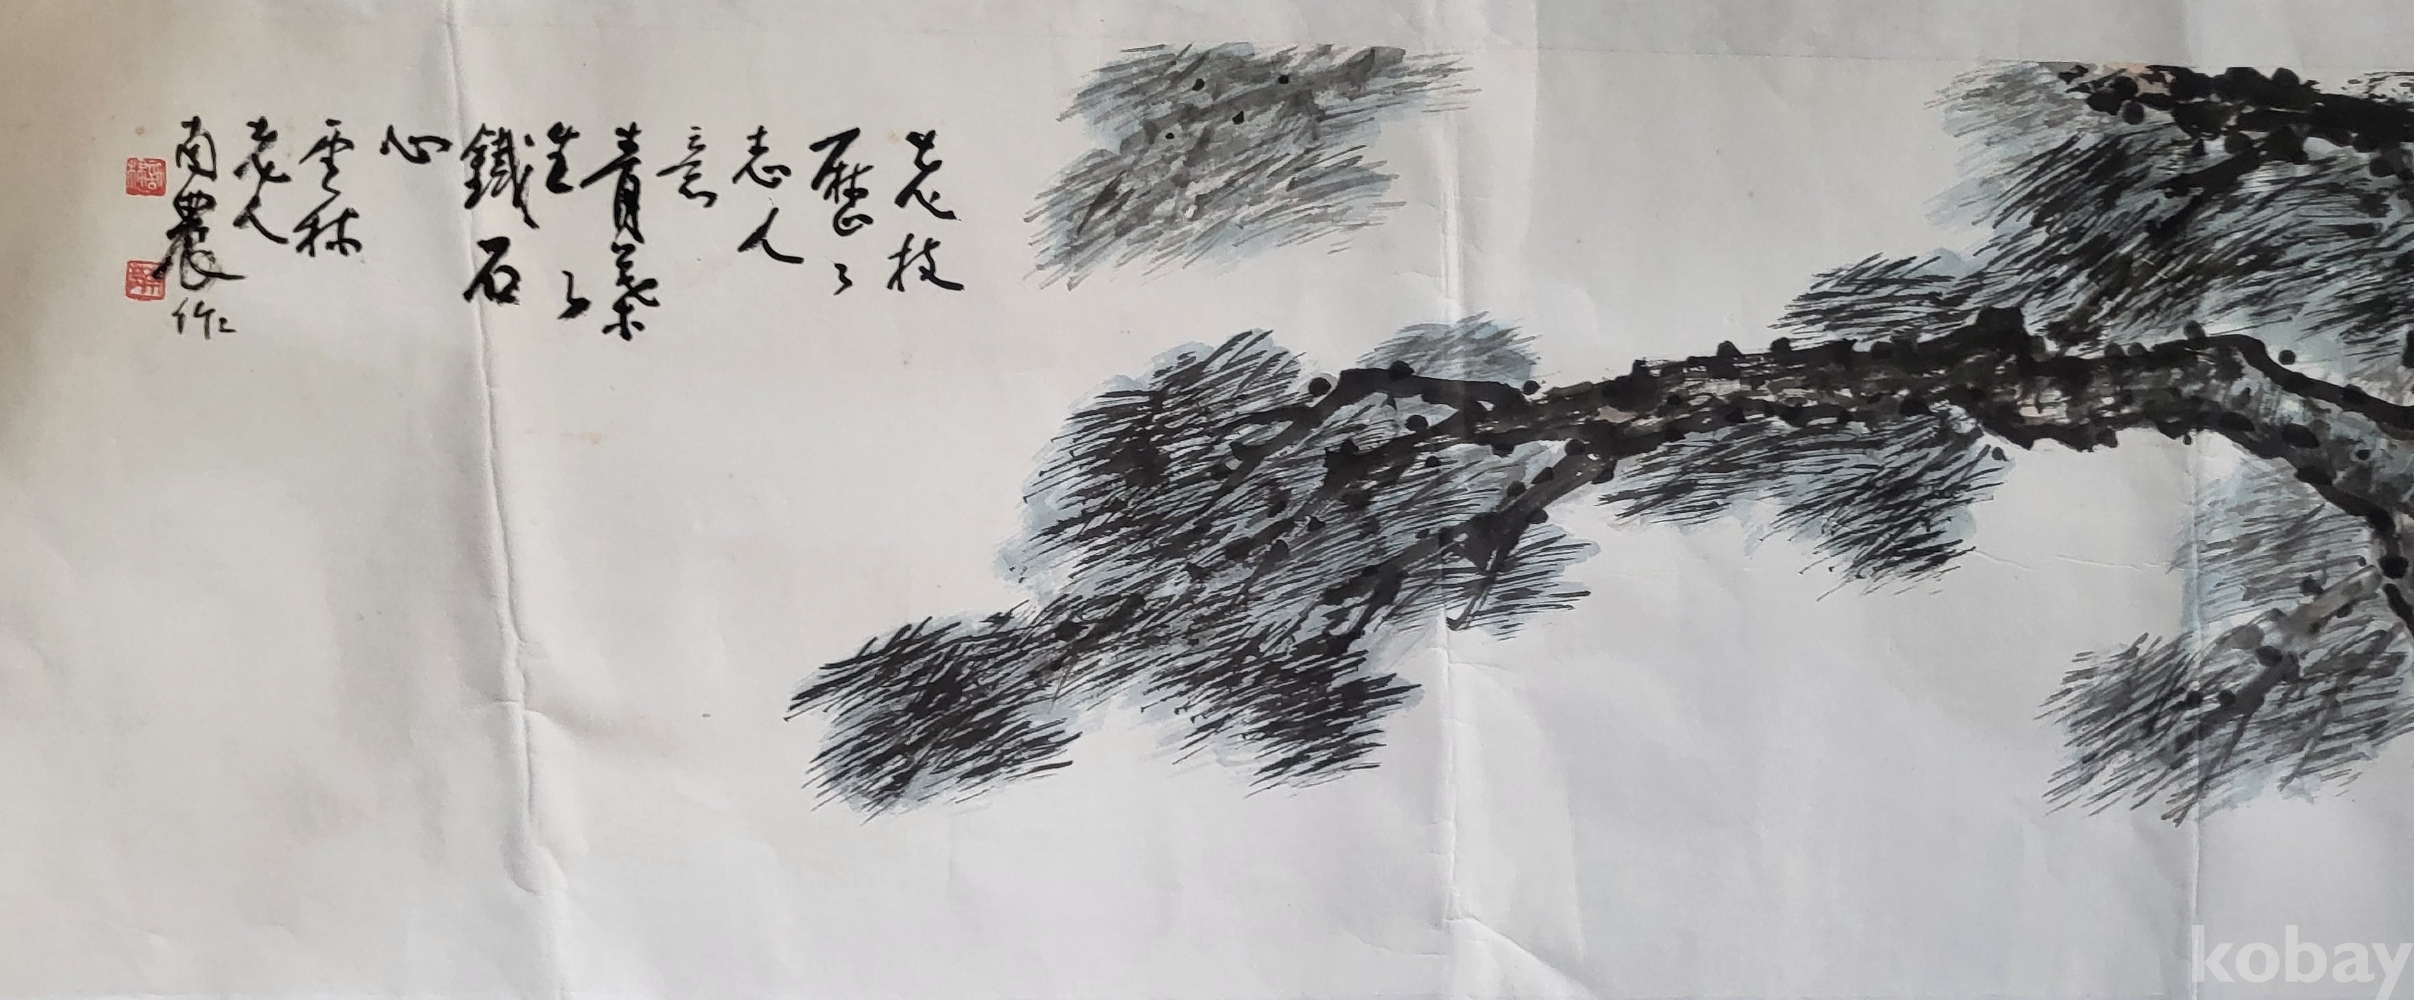 老枝
歷々
志人
意
青葉
生々
鐵石
心
雲林
老人
南農作
kobay